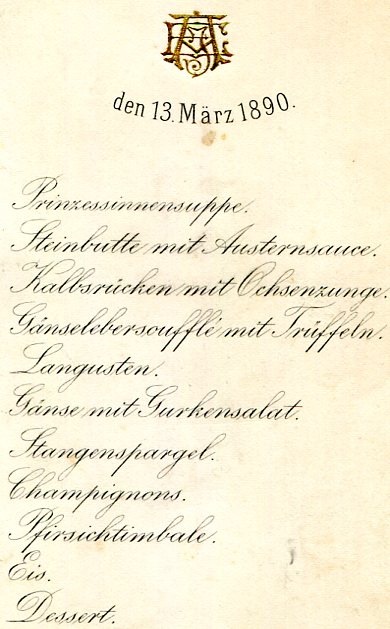 den 13. März 1890.
Prinzessinnensuppe.
Steinbutte mit Austernsauce.
Kalbsrücken mit Ochsenzunge.
Gänselebersoufflé mit Trüffeln.
Langusten.
Gänse mit Gurkensalat.
Stangenspargel.
Champignons.
Pfirsichtimbale.
Eis.
Dessert.